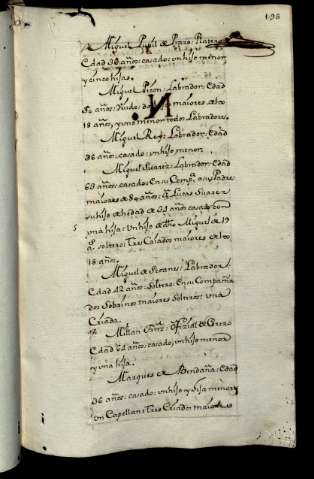 198
Miguel Pupil de Pozo: Platero
Edad 30 años: casado: un hijo menor
y cinco hijas.
Miguel Picon: Labrador: Edad
años: Viudo: dos maiores de los
18 años, y uno menor todos Labradores.
Miguel Rey: Labrador: Edad
36 años: casado: un hijo menor
Miguel Suarez: Labrador: Edad
68 años: casado: En su Comp.ª a su Padre
maiores de años: a Lucas Suarez
su hijo de hedad de años casado con
una hija: Un hijo de dho Miguel de 19
a.s soltero: Tres Criados maiores de los
18 años.
Miguel de Labrador:
Edad 42 años: Soltero: En su Compañia
dos Sobrinos maiores Solteros: una
Criada.
Millan Oficial de
Edad años: casado: un hijo menor
y una hija.
Marques de Abendaña: Edad
36 años: casado: un hijo y hija menor
un Capellan: Tres Criados maiores
N.